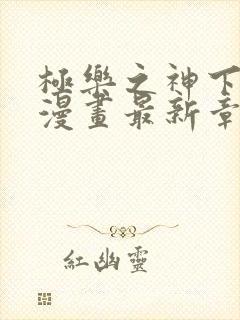 極樂之神下
漫畫最新章
紅幽靈